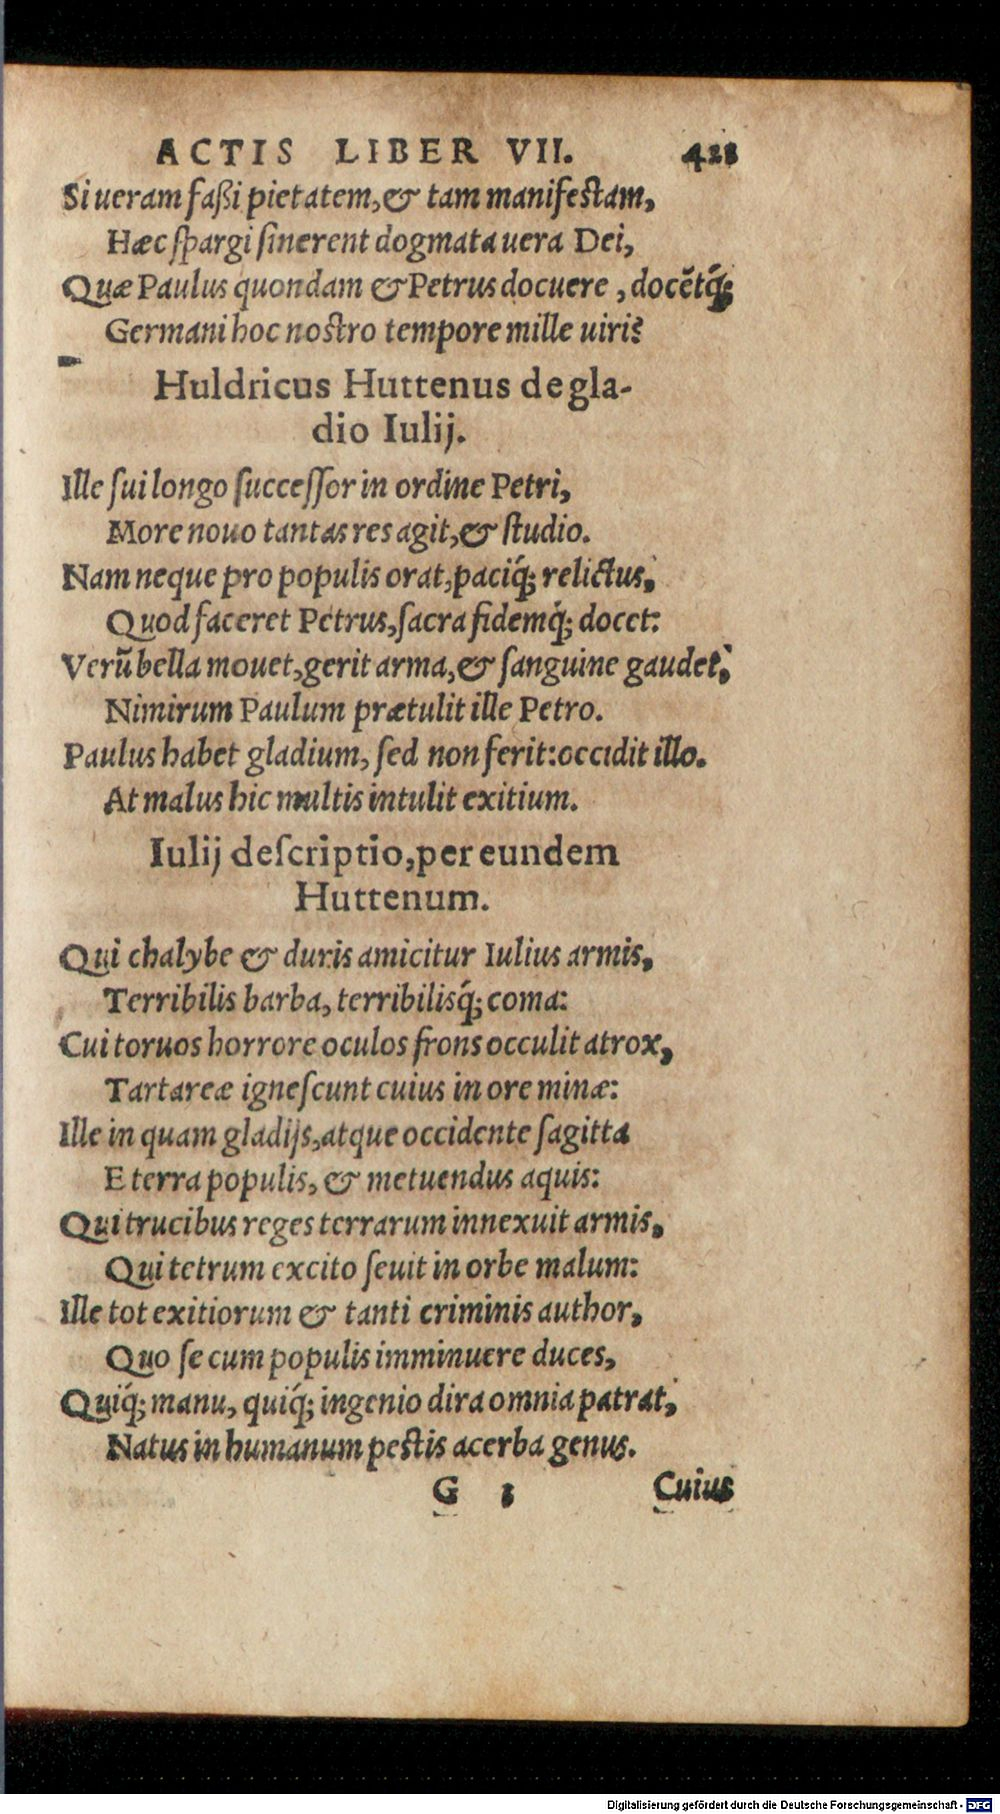 ACTIS LIBER VII. 421
Si ueram faßi pietatem, & tam manifestam,
Hæc spargi sinerent dogmata uera Dei,
Quæ Paulus quondam & Petrus docuere, docẽtq́;
Germani hoc nostro tempore mille uiri?
Huldricus Huttenus de gla-
dio Iulij.
Ille sui longo successor in ordine Petri,
More nouo tantas res agit, & studio.
Nam neque pro populis orat, paciq́; relictus,
Quod faceret Petrus, sacra fidemq́; docet:
Verũ bella mouet, gerit arma, & sanguine gaudet,
Nimirum Paulum prætulit ille Petro.
Paulus habet gladium, sed non ferit: occidit illo.
At malus hic multis intulit exitium.
Iulij descriptio, per eundem
Huttenum.
Qui chalybe & duris amicitur Iulius armis,
Terribilis barba, terribilisq́; coma:
Cui toruos horrore oculos frons occulit atrox,
Tartareæ ignescunt cuius in ore minæ:
Ille in quam gladijs, atque occidente sagitta
E terra populis, & metuendus aquis:
Qui trucibus reges terrarum innexuit armis,
Qui tetrum excito seuit in orbe malum:
Ille tot exitiorum & tanti criminis author,
Quo se cum populis imminuere duces,
Quiq́; manu, quiq́; ingenio dira omnia patrat,
Natus in humanum pestis acerba genus.
G Cuius
Digitalisierung gefördert durch die Deutsche Forschungsgemeinschaft - DFG